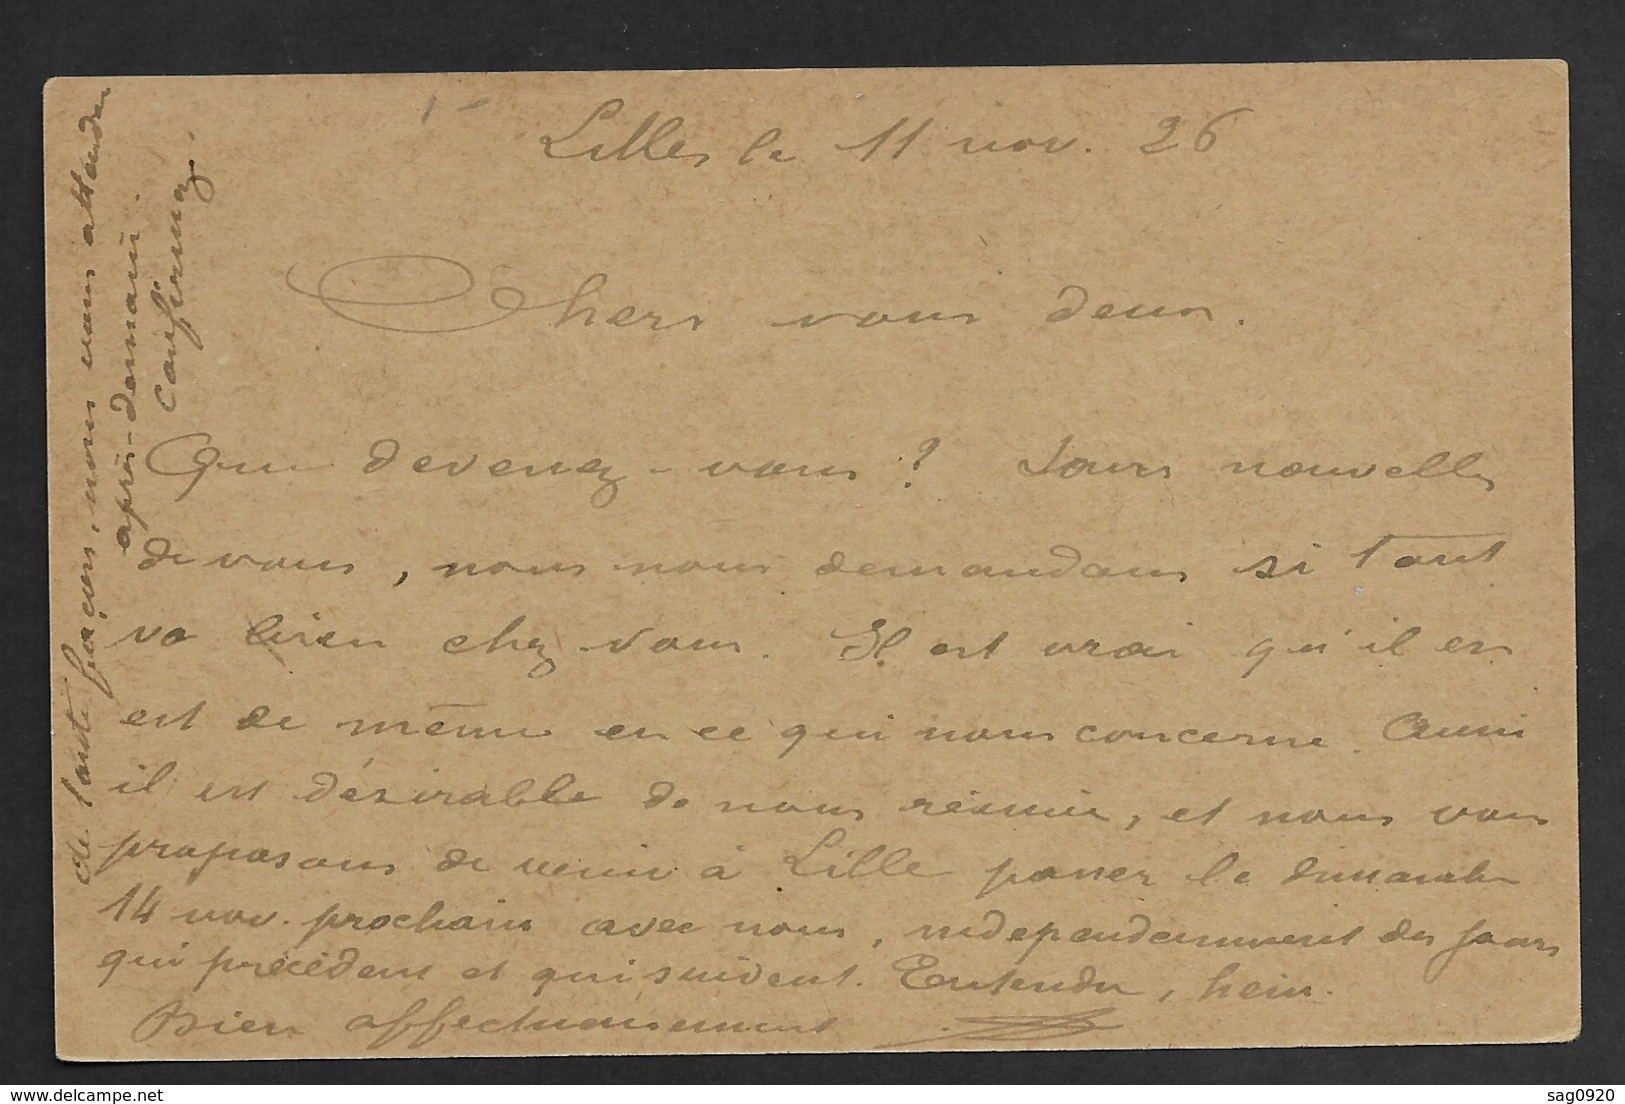 Lille, le 11 nov. 26
Chers vous deux.
Que devenez-vous ? Sans nouvelles
de vous, nous nous demandons si tout
va bien chez vous. Il est vrai qu'il en
est de même en ce qui nous concerne. Aussi
il est désirable de nous réunir, et nous vous
proposons de venir à Lille passer le dimanche
14 nov. prochain avec nous, indépendamment des jours
qui précèdent et qui suivent. Entendu, hein.
Bien affectueusement
de toute façon, nous vous attendons
après-demain.
Confirmez.
sag0920